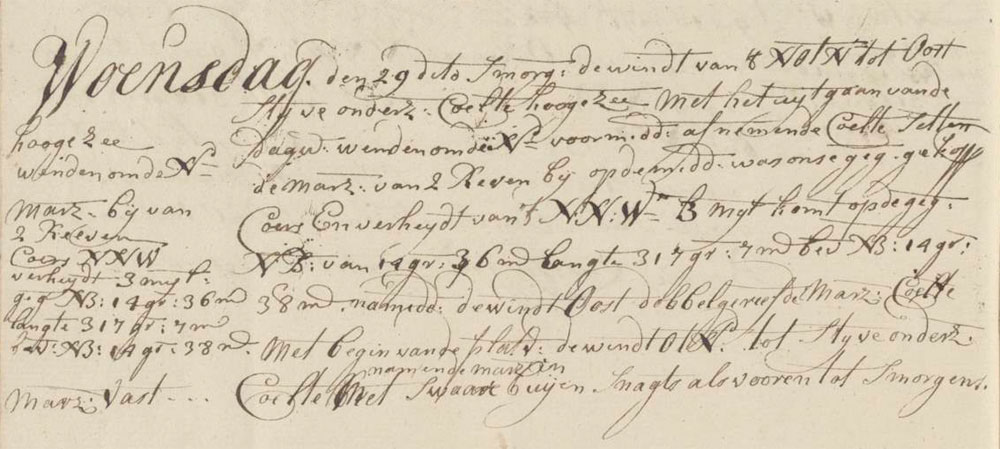 Woensdag. den 29 dito Smorg: de windt van 8 NotN tot Oost
Styve onderz: Coelte hooge zee Met het uytgaan vande
hooge zee
Dagw: wenden om de Nd voormidd: af nemende Coelte Setten
winden om de Nd
de Marz: van 2 Reven by op de midd: was onse geg: gekopp
Marz: bij van
2 Reeven
Coers En verheydt van't N:N:W 3 myl komt op de geg:
Coers NNW
NB: van 14 gr: 36 md langte 317 gr: 7 md bev NB: 14 gr:
verheydt 3 myl:
g:g NB: 14 gr: 36 md
38 md. namidd: de windt Oost dobbelgereefde Marz: Coelte
langte 317 gr: 7 md
bev: NB: 14 gr: 38 md.
Met begin vande plat: de windt OtN. tot Styve onderz:
namen de marz in
Marz: Vast - - -
Coelte Met Swaare buijen Snagts als vooren tot Smorgens.